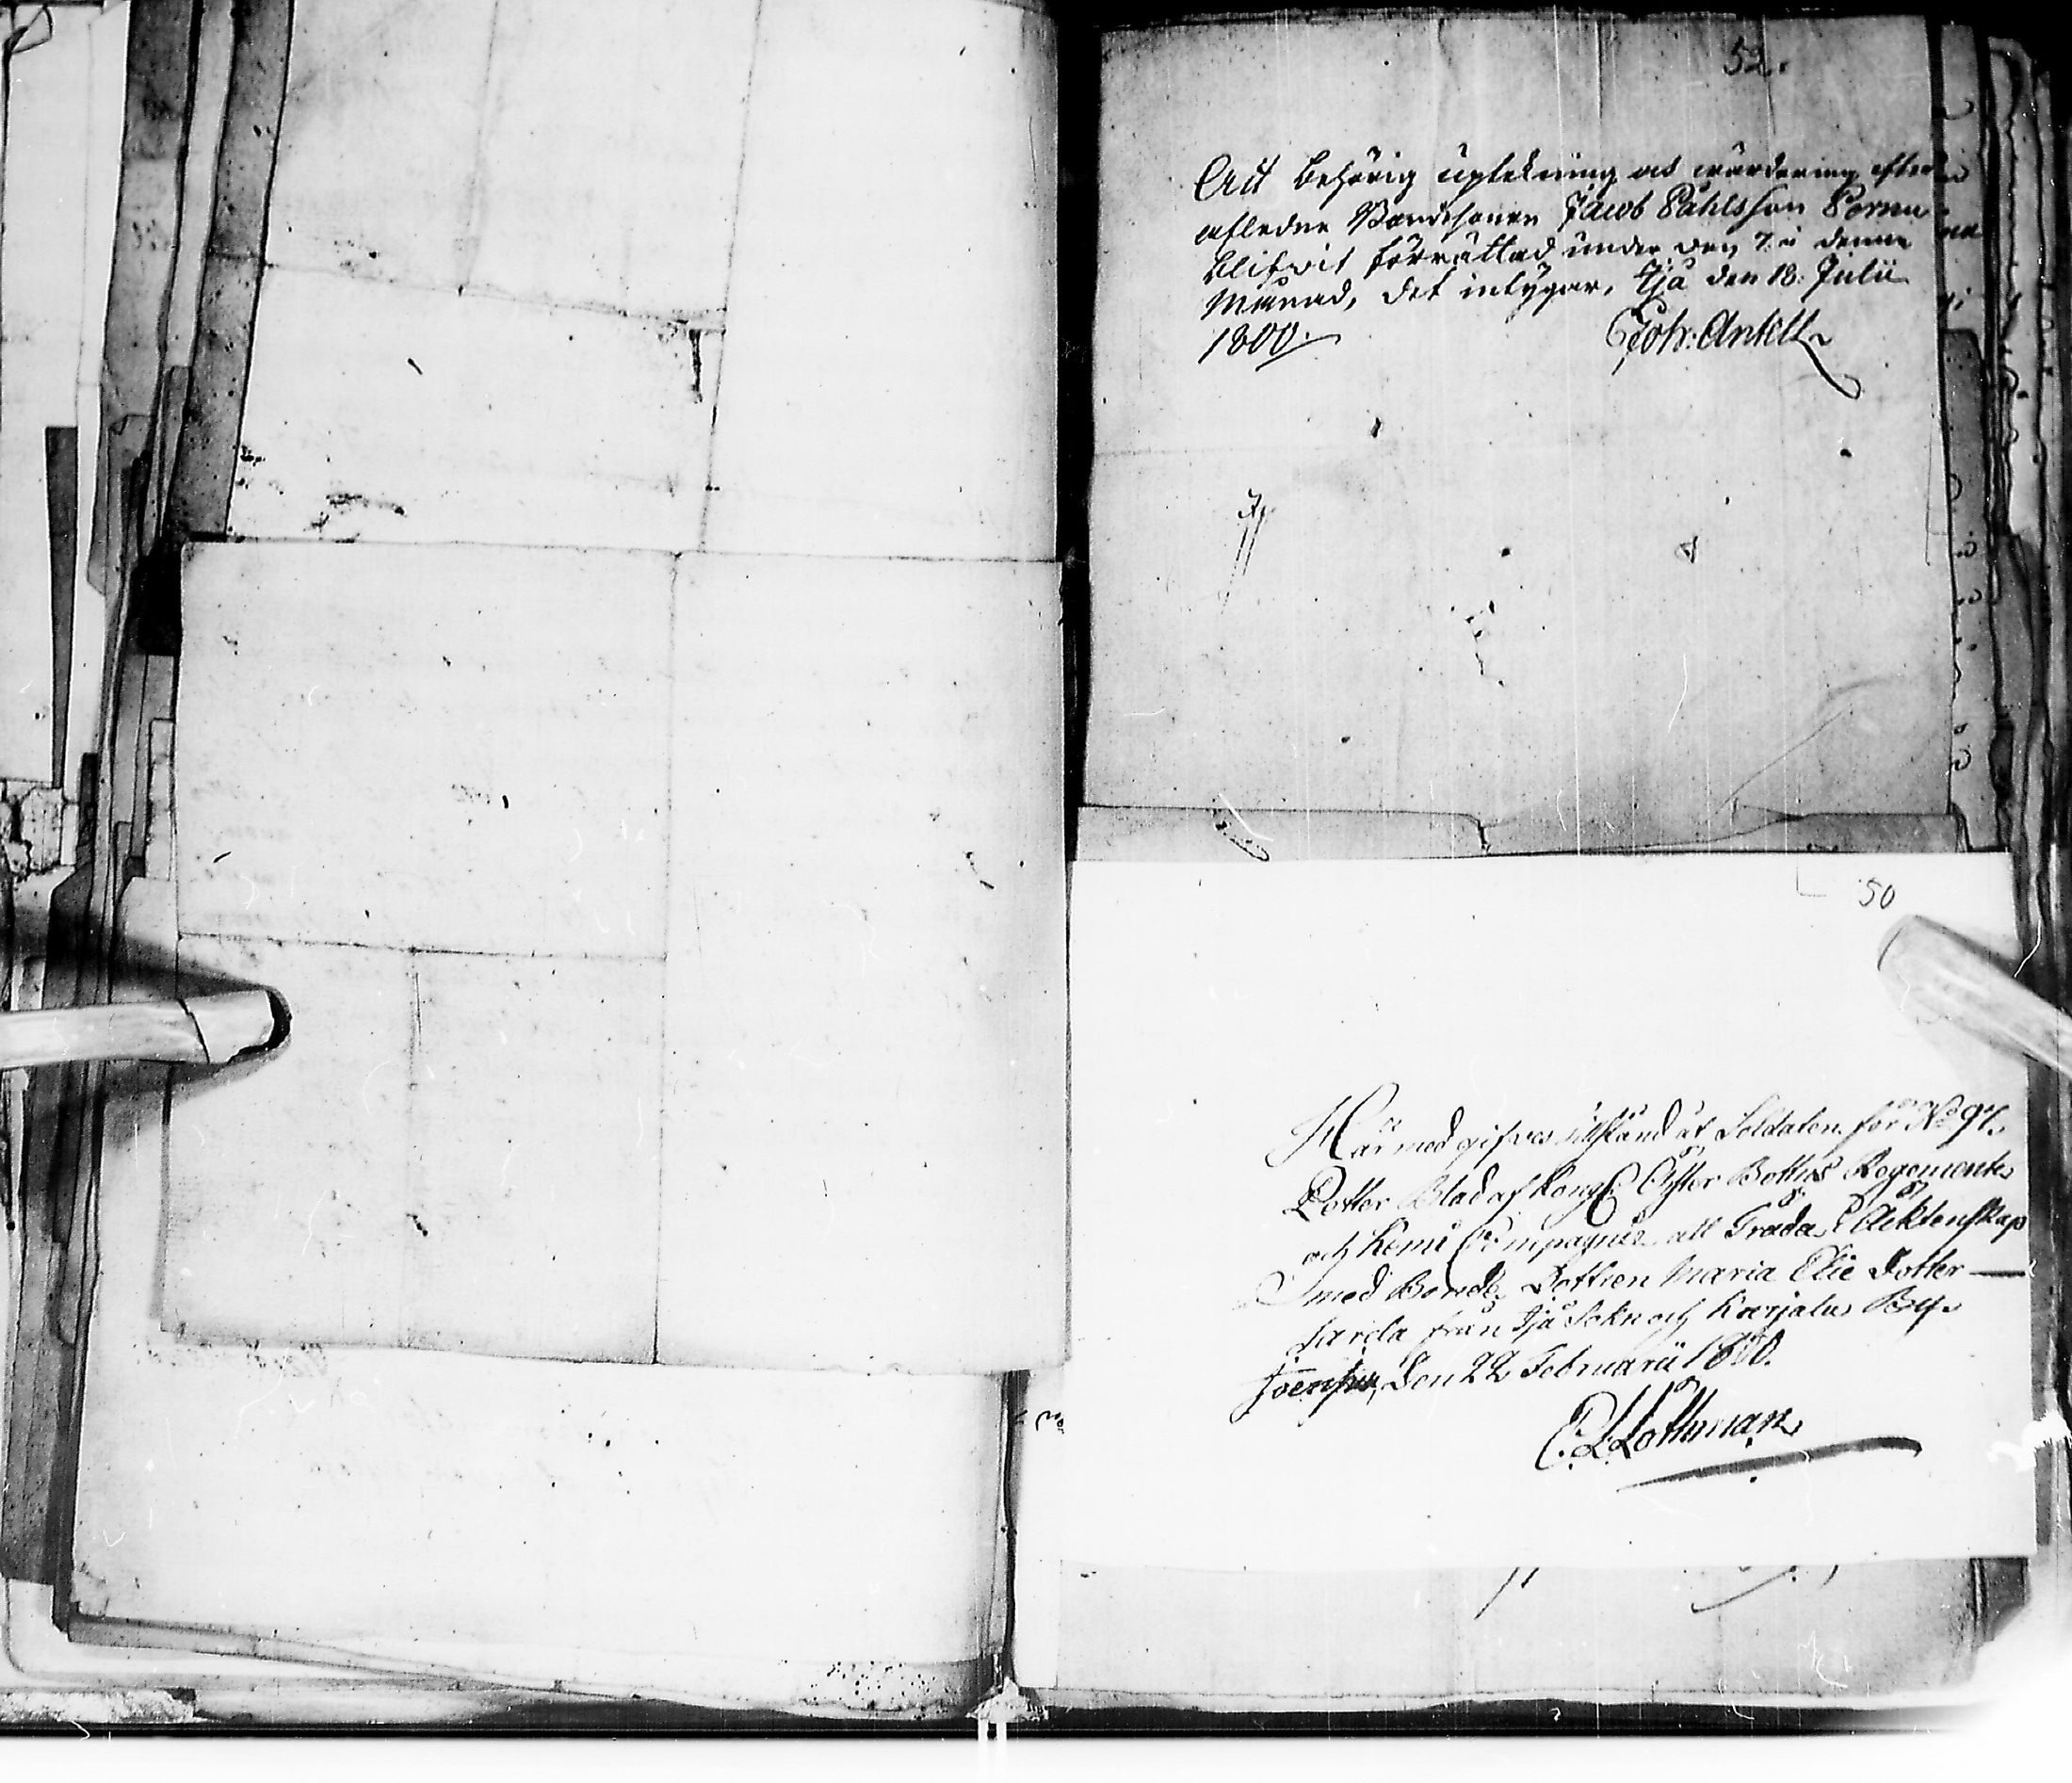 52.
Att behörig uptekning och värdering efter
aflidne Bondesonen Jacob Påhlsson Sorvu
blifvit förrättad under den 7 i denne
Månad, det intygar, Ijå den 18. Julii
1800.
Joh: Antell
50
Härmed gifves tillstånd åt Soldaten för No 97.
Petter Blad af Kongl. Öster Bottns Regemente
och Kemi Compagnie att Träda i Äktenskap
med Bonde Dottren Maria Elie Dotter
från Ijå Sokn och Karjalus By.
Joensu, Den 22 Februarii 1800.
C. L. Lothman